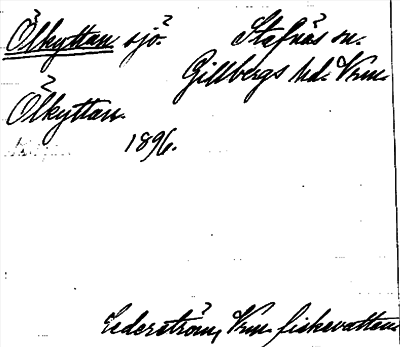 Ölkyttan sjö? Stafnäs sn.
Gillbergs hd. Vrm.
Ölkyttan.
1896.
Cederström, Vrm. fiskevatten